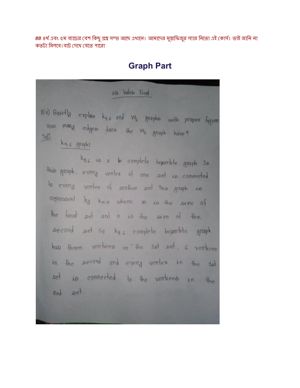 ## ৪র্থ এবং ৫ম ব্যাচের বেশ কিছু প্রশ্ন সল্ভ আছে এখানে। আমাদের
কতটা মিলবে। বাট দেখে যেতে পারো
Graph Part
Q) Briefly explain K3,6 and W5 graphs with proper figures
how many edges does the W5 graph have?
K3,6 graph:
K3,6 is a complete bipartite graph. In
this graph, every vertex of one set is connected
to every vertex of another set. This graph is
expressed by Km,n where m is the size of
the first set and n is the size of the
second set. So K3,6 complete bipartite graph
has three vertices in the 1st set, 6 vertices
in the second and every vertex in the 1st
set is connected to the vertices in the
2nd set.